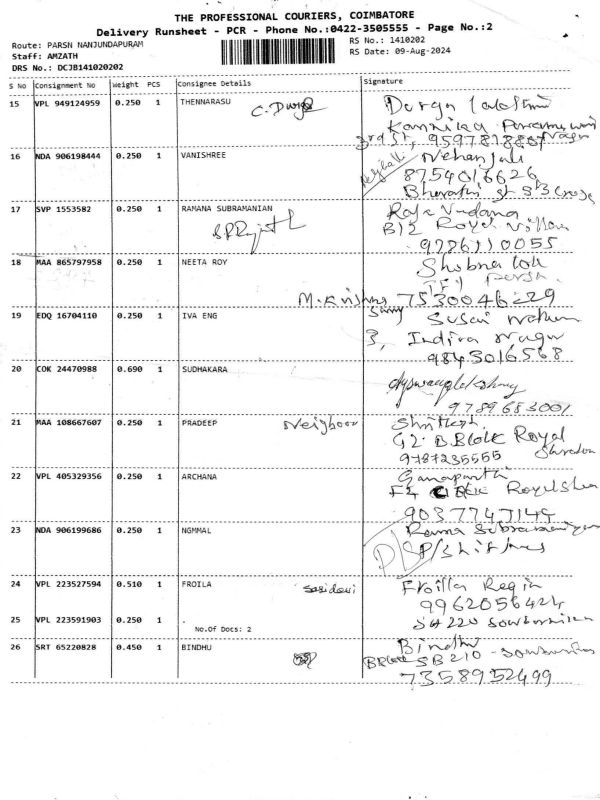 THE PROFESSIONAL COURIERS, COIMBATORE
Delivery Runsheet - PCR - Phone No.:0422-3505555 - Page No.:2
Route: PARSN NANJUNDAPURAM
RS No.: 1410202
Staff: AMZATH
RS Date: 09-Aug-2024
DRS No.: DCJB141020202
S No Consignment No Weight PCS Consignee Details Signature
15 VPL 949124959 0.250 1 THENNARASU C. Durga Durga Lakshmi
Kannika Nagar
3rd St, 9597878807
16 NDA 906198444 0.250 1 VANISHREE Nehanjali
8754016626
Bharathi st
17 SVP 1553582 0.250 1 RAMANA SUBRAMANIAN
B12 Royal Villa
9786110055
18 MAA 865797958 0.250 1 NEETA ROY Shobna
M. Krishna Samy 7530046229
19 EDQ 16704110 0.250 1 IVA ENG Susai
3, Indira Nagar
9843016568
20 COK 24470988 0.690 1 SUDHAKARA
9789683001
21 MAA 108667607 0.250 1 PRADEEP Neighbour
G2. B.Block Royal
9787235555
22 VPL 405329356 0.250 1 ARCHANA Ganapathi
F4
9037747144
23 NDA 906199686 0.250 1 NGMMAL Rama Subramaniyan
24 VPL 223527594 0.510 1 FROILA Sasidevi Froilla Regin
9962056424
25 VPL 223591903 0.250 1 . SA 220 Sowbarnika
No.Of Docs: 2
26 SRT 65220828 0.450 1 BINDHU Bindhu
B Block SB 210 - Sowbarnika
7358952499